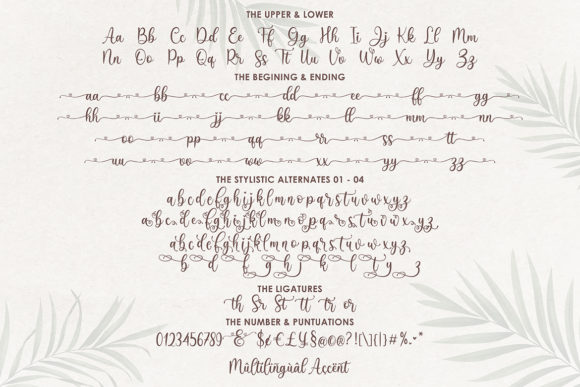 THE UPPER & LOWER
Aa Bb Cc Dd Ee Ff Gg Hh Ii Jj Kk Ll Mm
Nn Oo Pp Qq Rr Ss Tt Uu Vv Ww Xx Yy Zz
THE BEGINING & ENDING
aa bb cc dd ee ff gg
hh ii jj kk ll mm nn
oo pp qq rr ss tt
uu vv ww xx yy zz
THE STYLISTIC ALTERNATES 01 - 04
abcdefghijklmnopqrstuvwxyz
abcdefghijklmnopqrstuvwxyz
abcdefghijklmnopqrstuvwxyz
b d f g h j k l t y z
THE LIGATURES
th Sr St tt tr or
THE NUMBER & PUNTUATIONS
0123456789 & $¢€£¥§@©®?![\]{|}#%.-*
Multilingual Accent